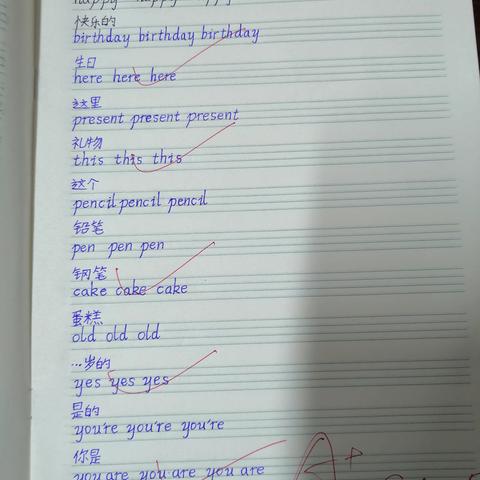 happy happy happy
快乐的
birthday birthday birthday
生日
here here here
这里
present present present
礼物
this this this
这个
pencil pencil pencil
铅笔
pen pen pen
钢笔
cake cake cake
蛋糕
old old old
...岁的
yes yes yes
是的
you're you're you're
你是
you are you are you are
A+